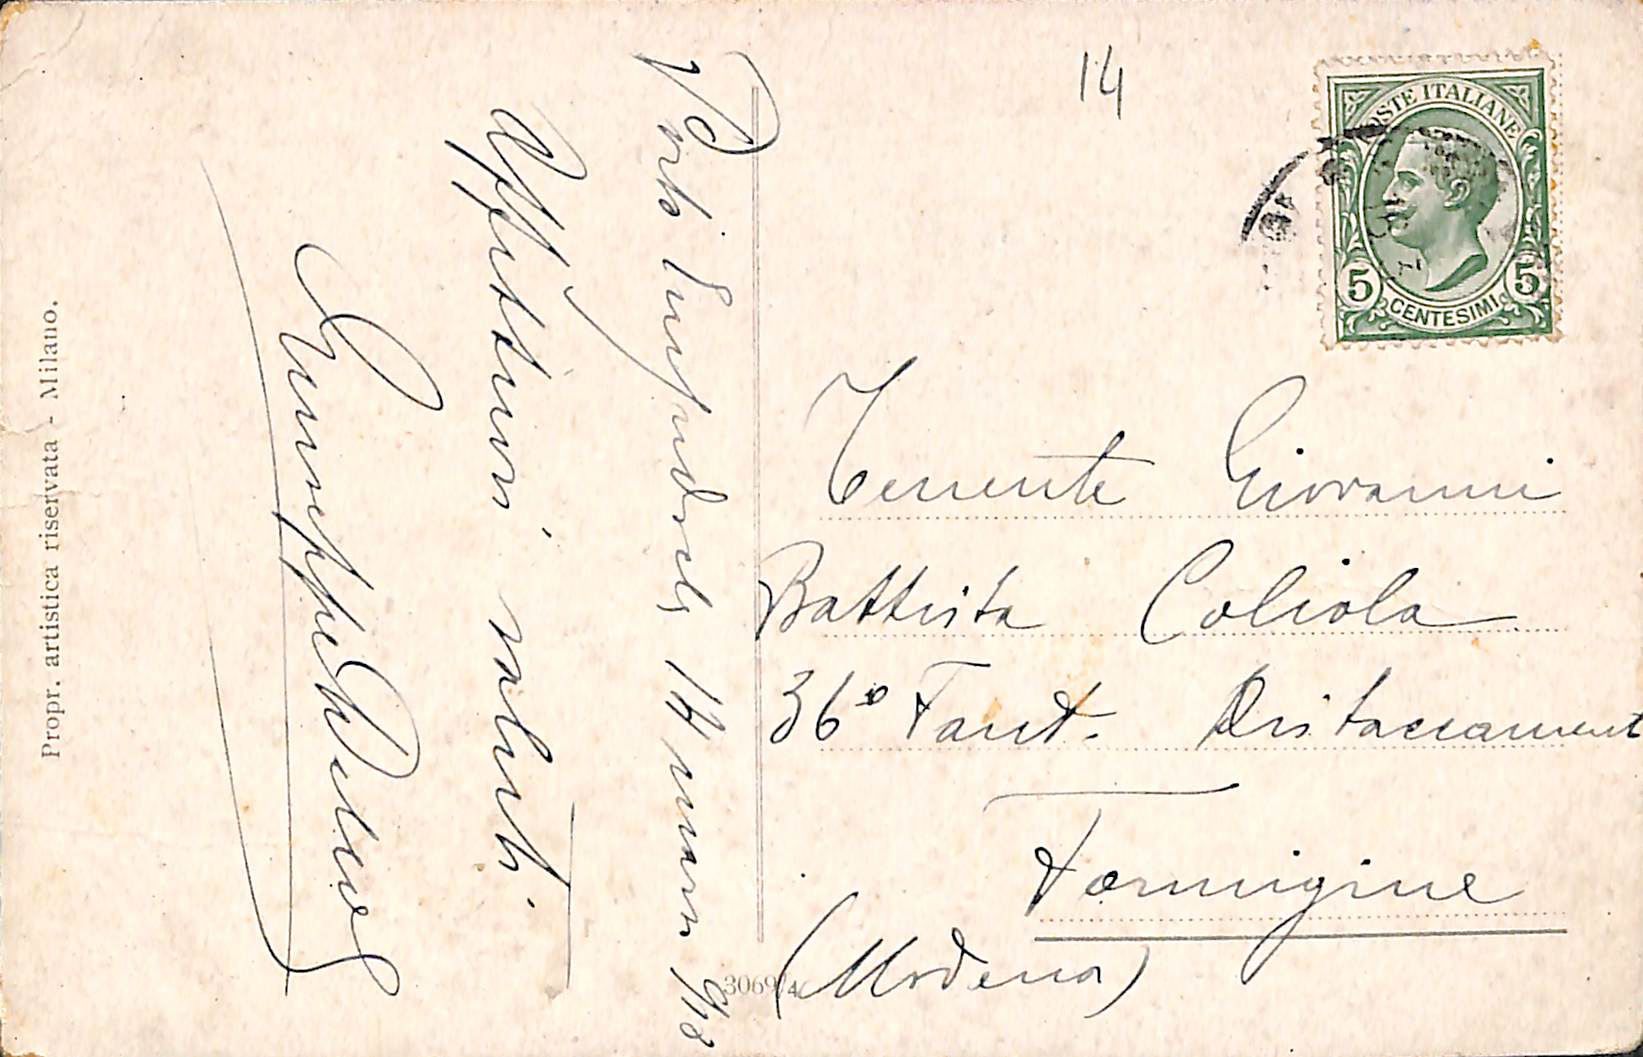 POSTE ITALIANE
5 CENTESIMI 5
14
Tenente Giovanni
Battista Coliola
36° Fant. Distaccament
Formigine
(Modena)
Porto Empedocle, 14 marzo 913
Affettuosi saluti
Giuseppe
Propr. artistica riservata - Milano.